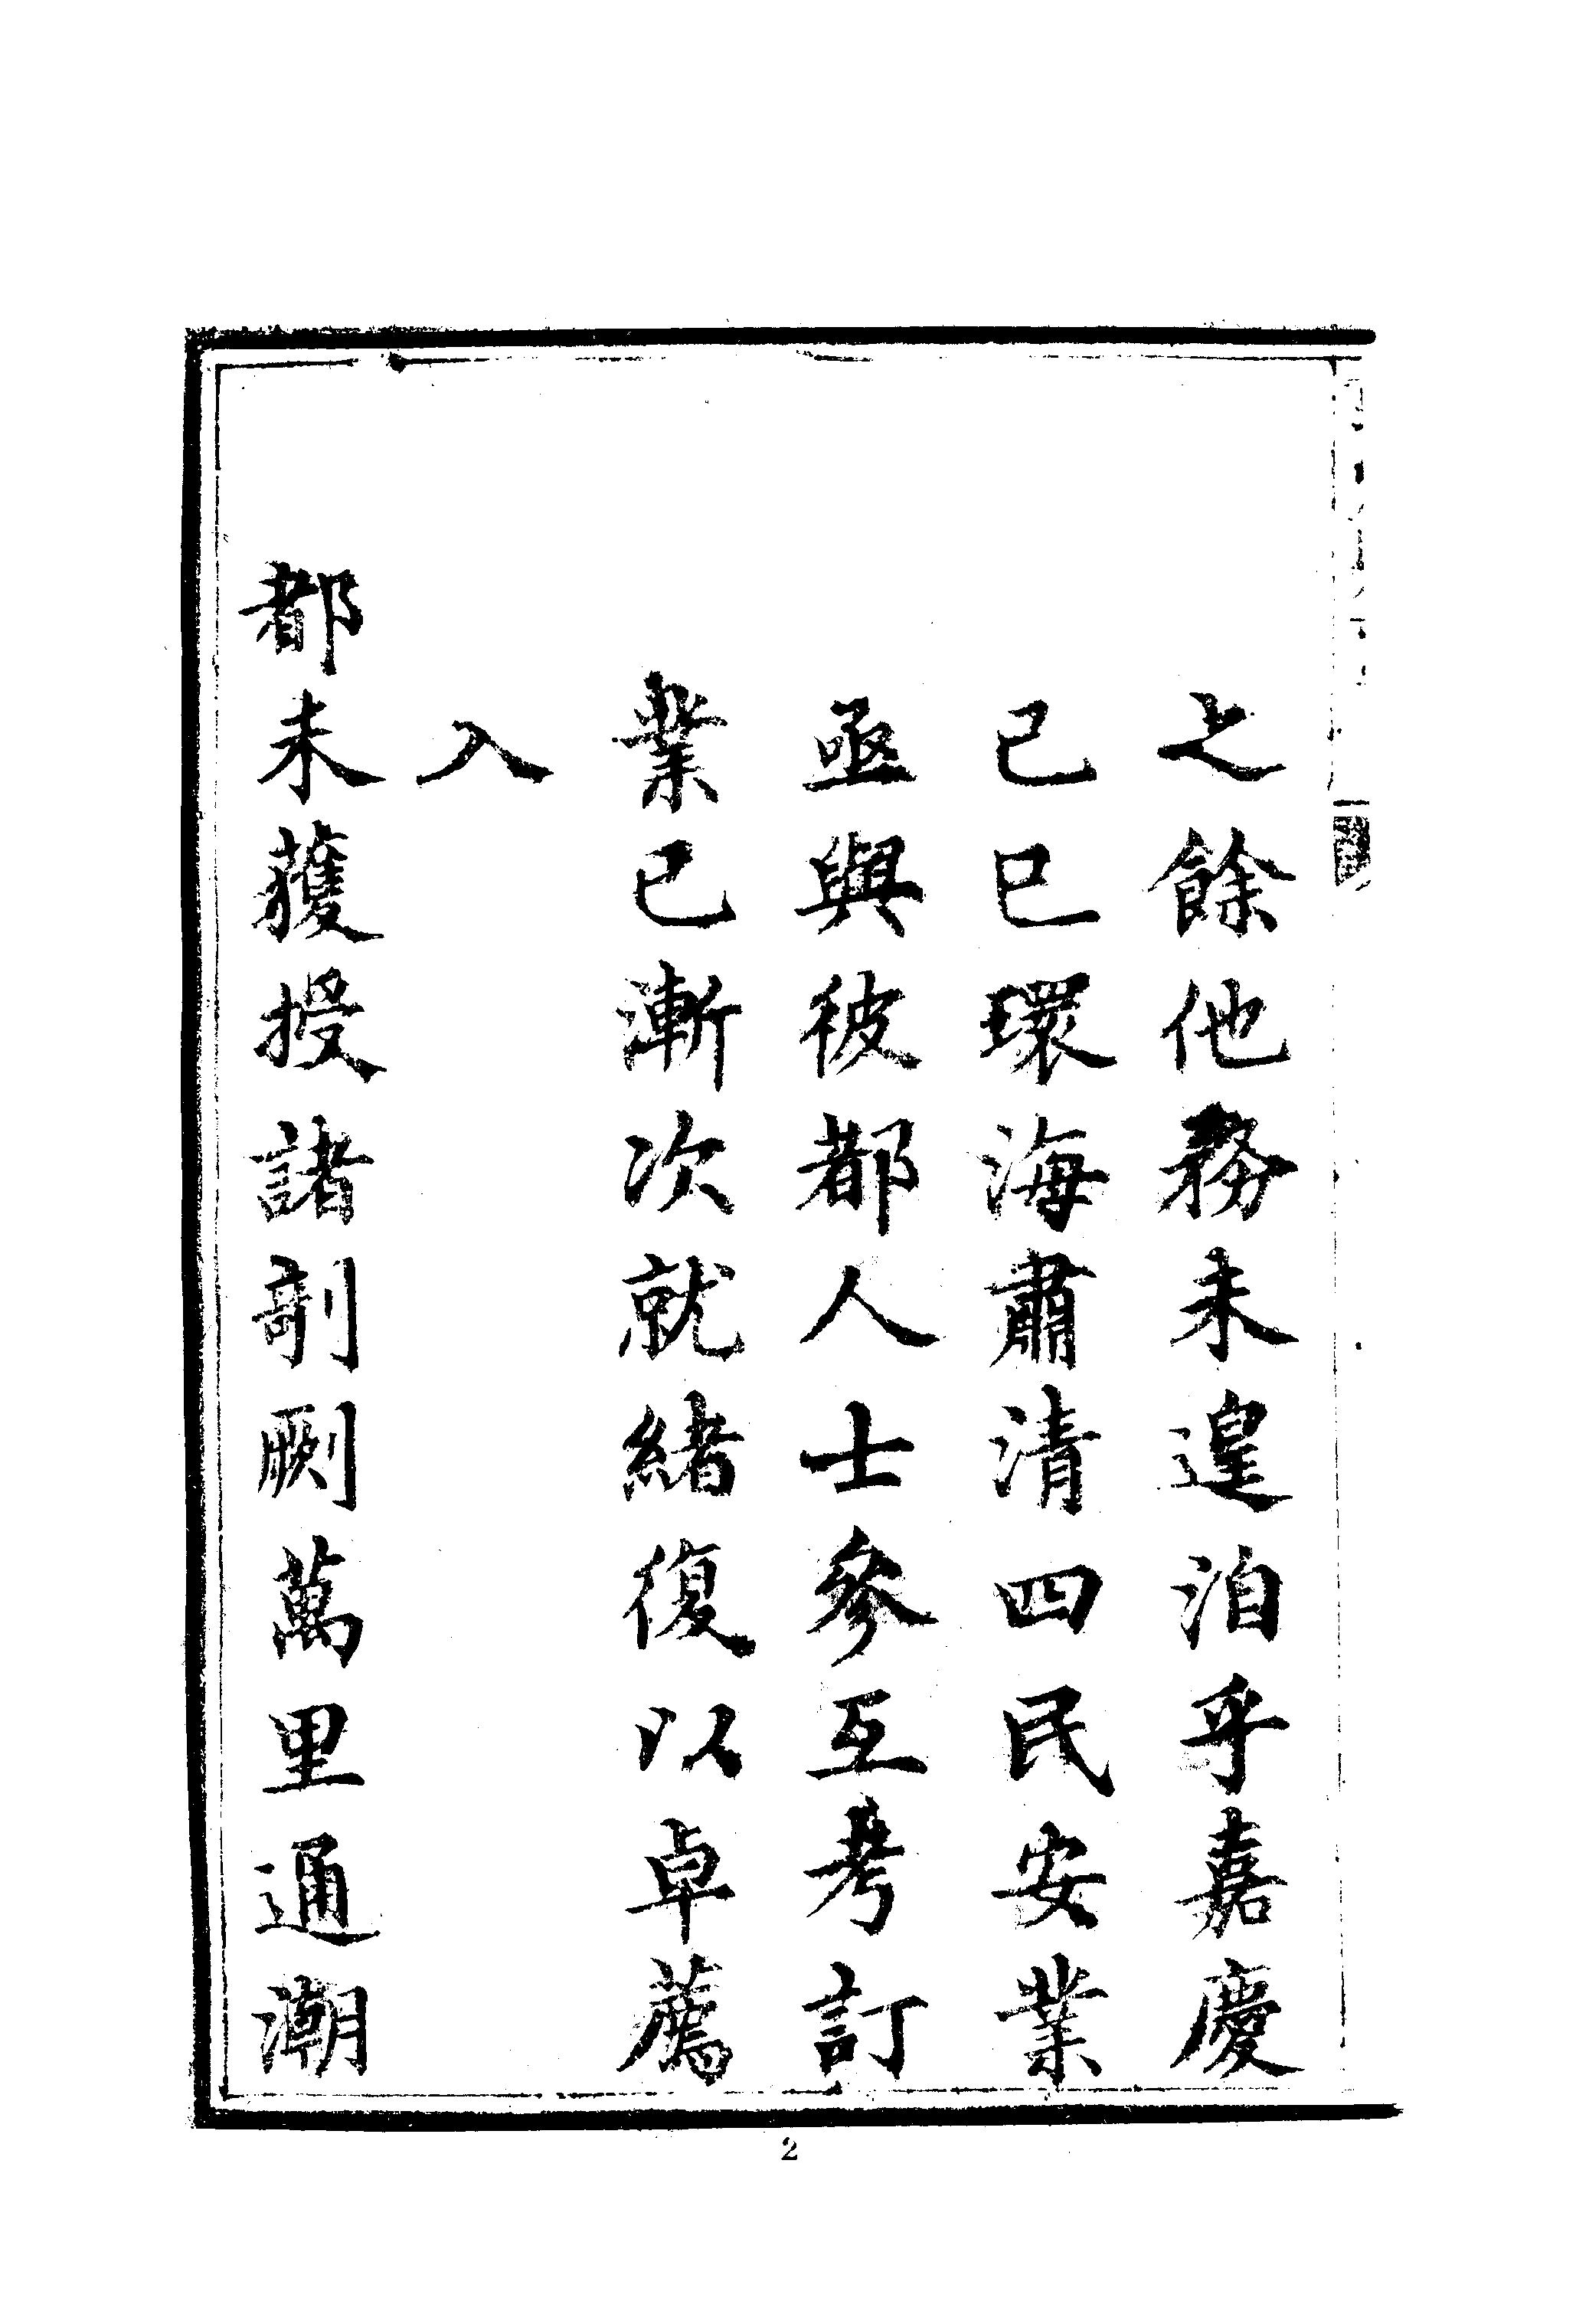 之餘他務未遑洎乎嘉慶
己巳環海肅清四民安業
亟與彼都人士參互考訂
業已漸次就緒復以卓薦
入
都未獲授諸剞劂萬里通潮
2